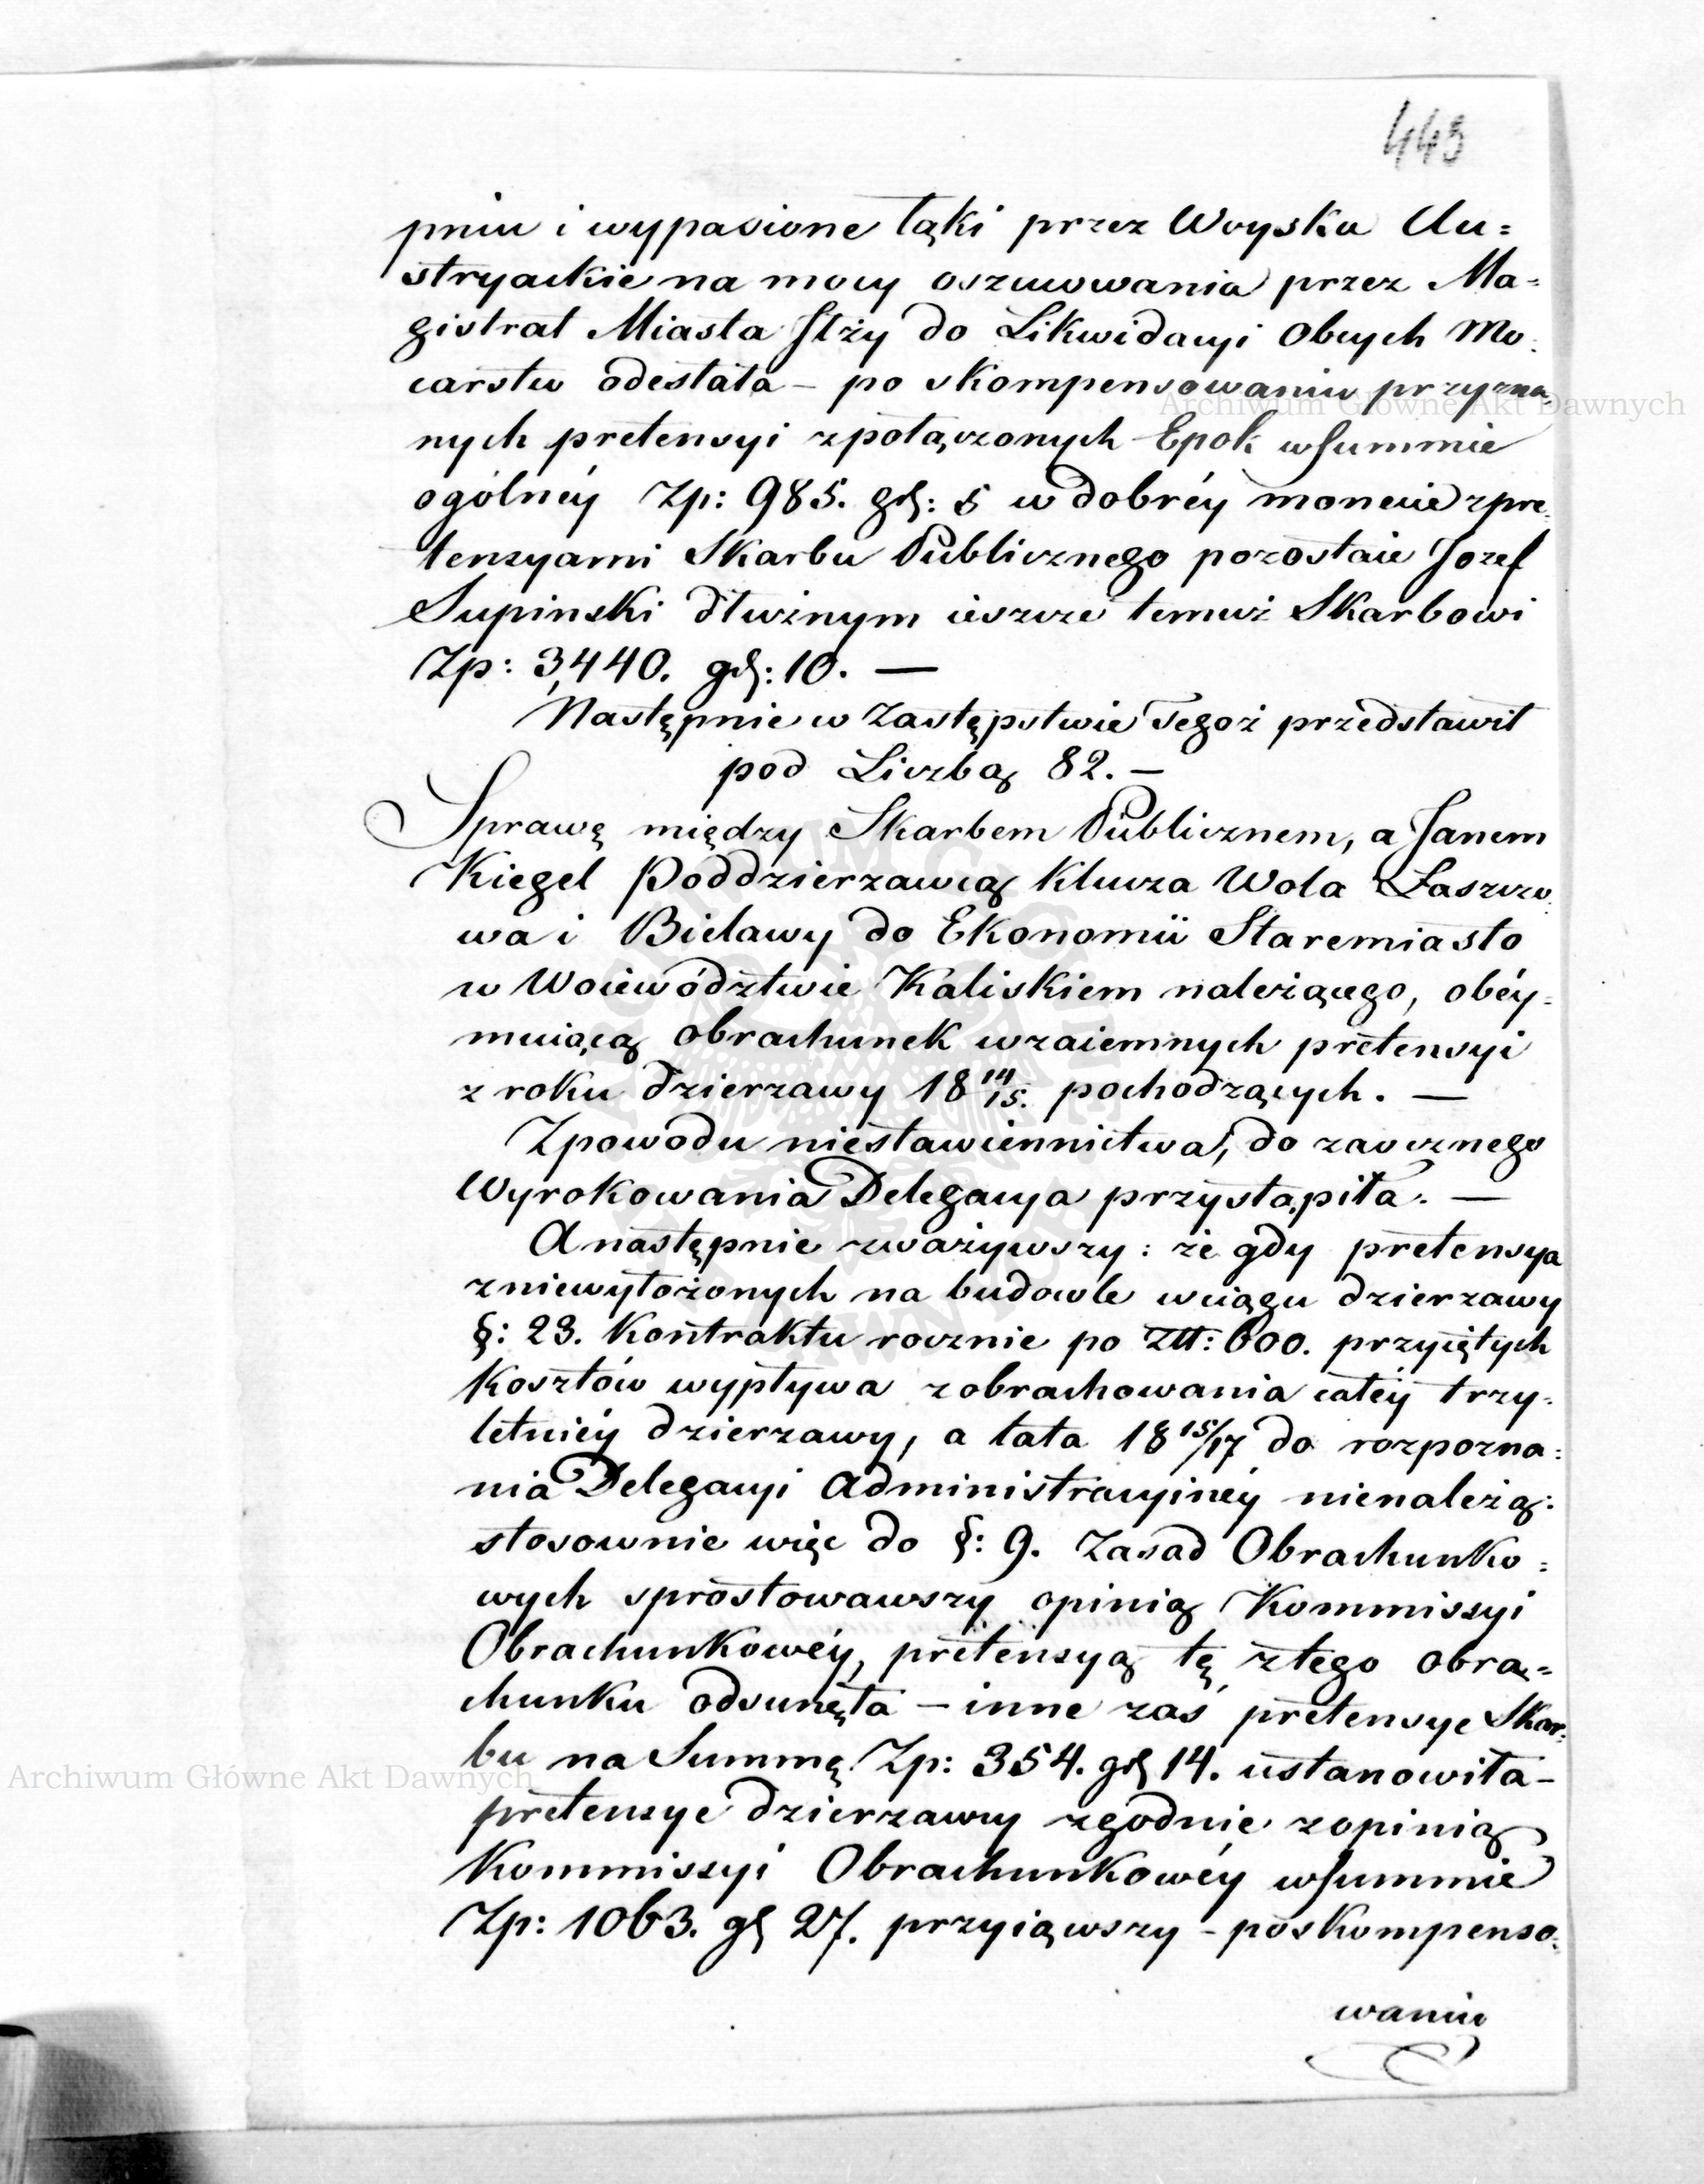 443
pniu i wypasione łąki przez Woyska Au=
stryackie na mocy oszacowania przez Ma=
gistrat Miasta Iłży do Likwidacyi Obcych Mo=
carstw odesłała – po skompensowaniu przyzna=
nych pretensyi zpołączonych Epok w Summie
ogólnéy Zp: 985. gr: 5 w dobréy monecie z pre=
tensyami Skarbu Publicznego pozostaie Jozef
Supinski dłużnym ieszcze temuż Skarbowi
Zp: 3,440. gr: 10. —
Następnie w Zastępstwie Tegoż przedstawił
pod Liczbą 82. –
Sprawę między Skarbem Publicznem, a Janem
Kiegel Poddzierzawcą Klucza Wola Łaszczo=
wa i Bielawy do Ekonomii Staremiasto
w Woiewództwie Kaliskiem należącego, obéy=
muiącą obrachunek wzaiemnych pretensyi
z roku dzierzawy 18 14/15. pochodzących. —
Zpowodu niestawiennictwa, do zaocznego
Wyrokowania Delegacya przystąpiła. —
A następnie zważywszy: że gdy pretensya
z niewyłożonych na budowle w ciągu dzierzawy
§: 23. Kontraktu rocznie po Złł: 600. przyiętych
Kosztów wypływa z obrachowania całéy trzy=
letniéy dzierzawy, a lata 18 15/17 do rozpozna=
nia Delegacyi Administracyinéy nienależą:
stosownie więc do §: 9. Zasad Obrachunko=
wych sprostowawszy opinią Kommissyi
Obrachunkowéy, pretensyą tę z tego obra=
chunku odsunęła – inne zaś pretensye Skar=
bu na Summę Zp: 354. gr 14. ustanowiła –
pretensye dzierzawcy zgodnie z opinią
Kommissyi Obrachunkowéy w Summie
Zp: 1063. gr 27. przyiąwszy – po skompenso=
waniu
Archiwum Główne Akt Dawnych
Archiwum Główne Akt Dawnych